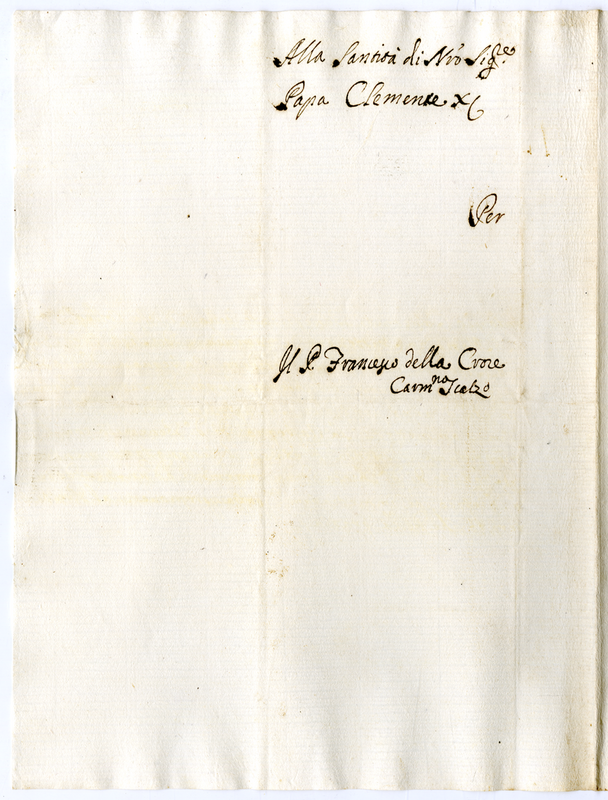 Alla Santità di Nro Sig.re
Papa Clemente XI
Per
Il P. Francesco della Croce
Carm.no Scalzo